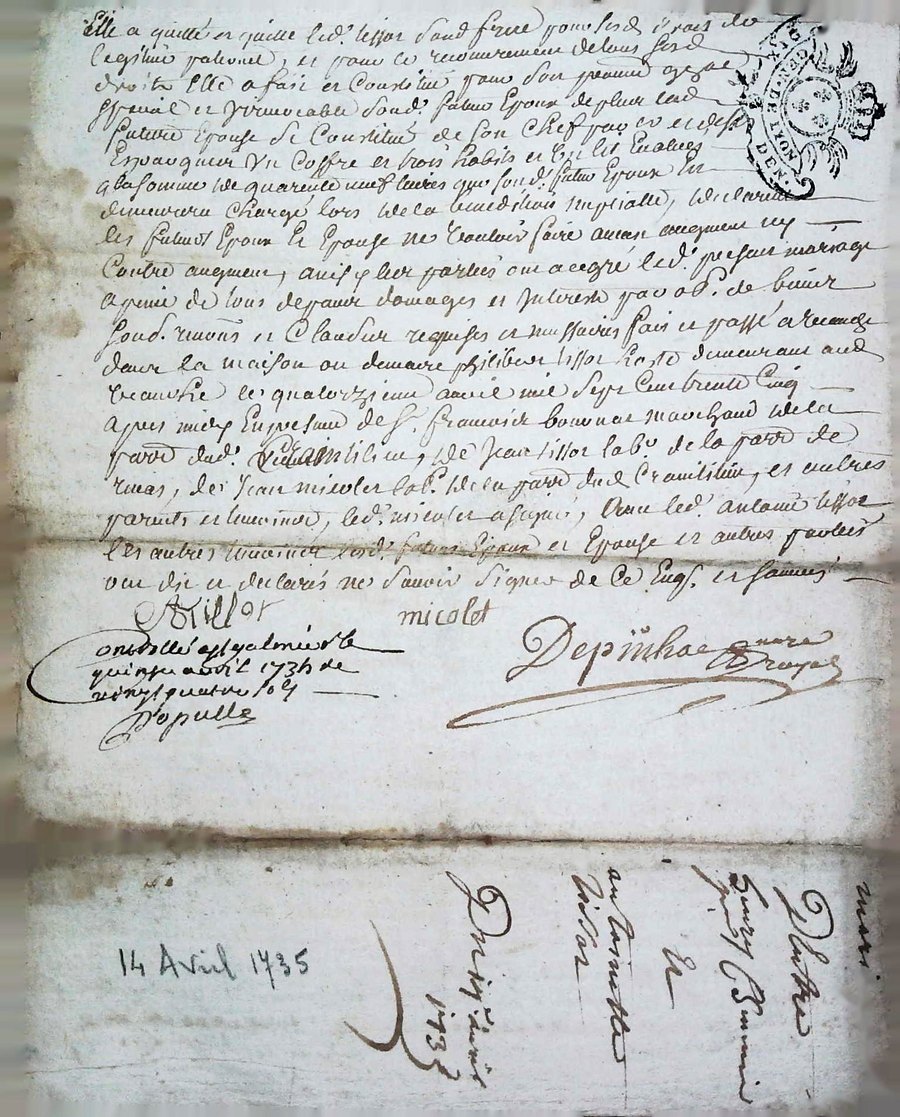 Elle a quitté et quitte led. tissot sond frere pour sesd droits de
legitime paternel, et pour le recouvrement de tous sesd
droits Elle a fait et Constitué pour son procureur gnal
special et irrevocable sond. futur Epoux de plus lad
future Epouse se Constitue de son chef
Un Coffre et trois habits et Un lit Evalués
a la somme de quarente neuf livres que sond. futur Epoux En
demeurera chargé lors de la benediction nuptialle, declarent
les futurs Epoux Et Epouse ne vouloir faire aucun augment ny
Contre augment, ainsy les parties ont aggréé led. present mariage
a peine de tous depans domages et Interest par obl. de biens
soud. renons et Clauses requises et necessaires fait et passé a
dans la maison ou demeure philibert tissot hoste demeurant aud
le quatorzieme avril mil sept Cent trente Cinq
apres midy En presence de Sr. francois marchand de la
parr dud. Craintilieu, de Jean tissot labr. de la parr de
rivas, de Jean micolet labr. de la parr dud. Craintilieu, et autres
parents et temoins, led. micolet a signé, led. antoine tissot
les autres temoins lesd. futurs Epoux et Epouse et autres parties
ont dit et declarés ne scavoir signer de Ce Enqs. et sommés
ATissot micolet
Controllé a st galmier le
quinze avril 1735 Re
vingt quatre sols
Depinhac nore
Royal
GEN. DE LYON
DEN.
14 Avril 1735
mari
henry
Et
antoinette
tissot
1735